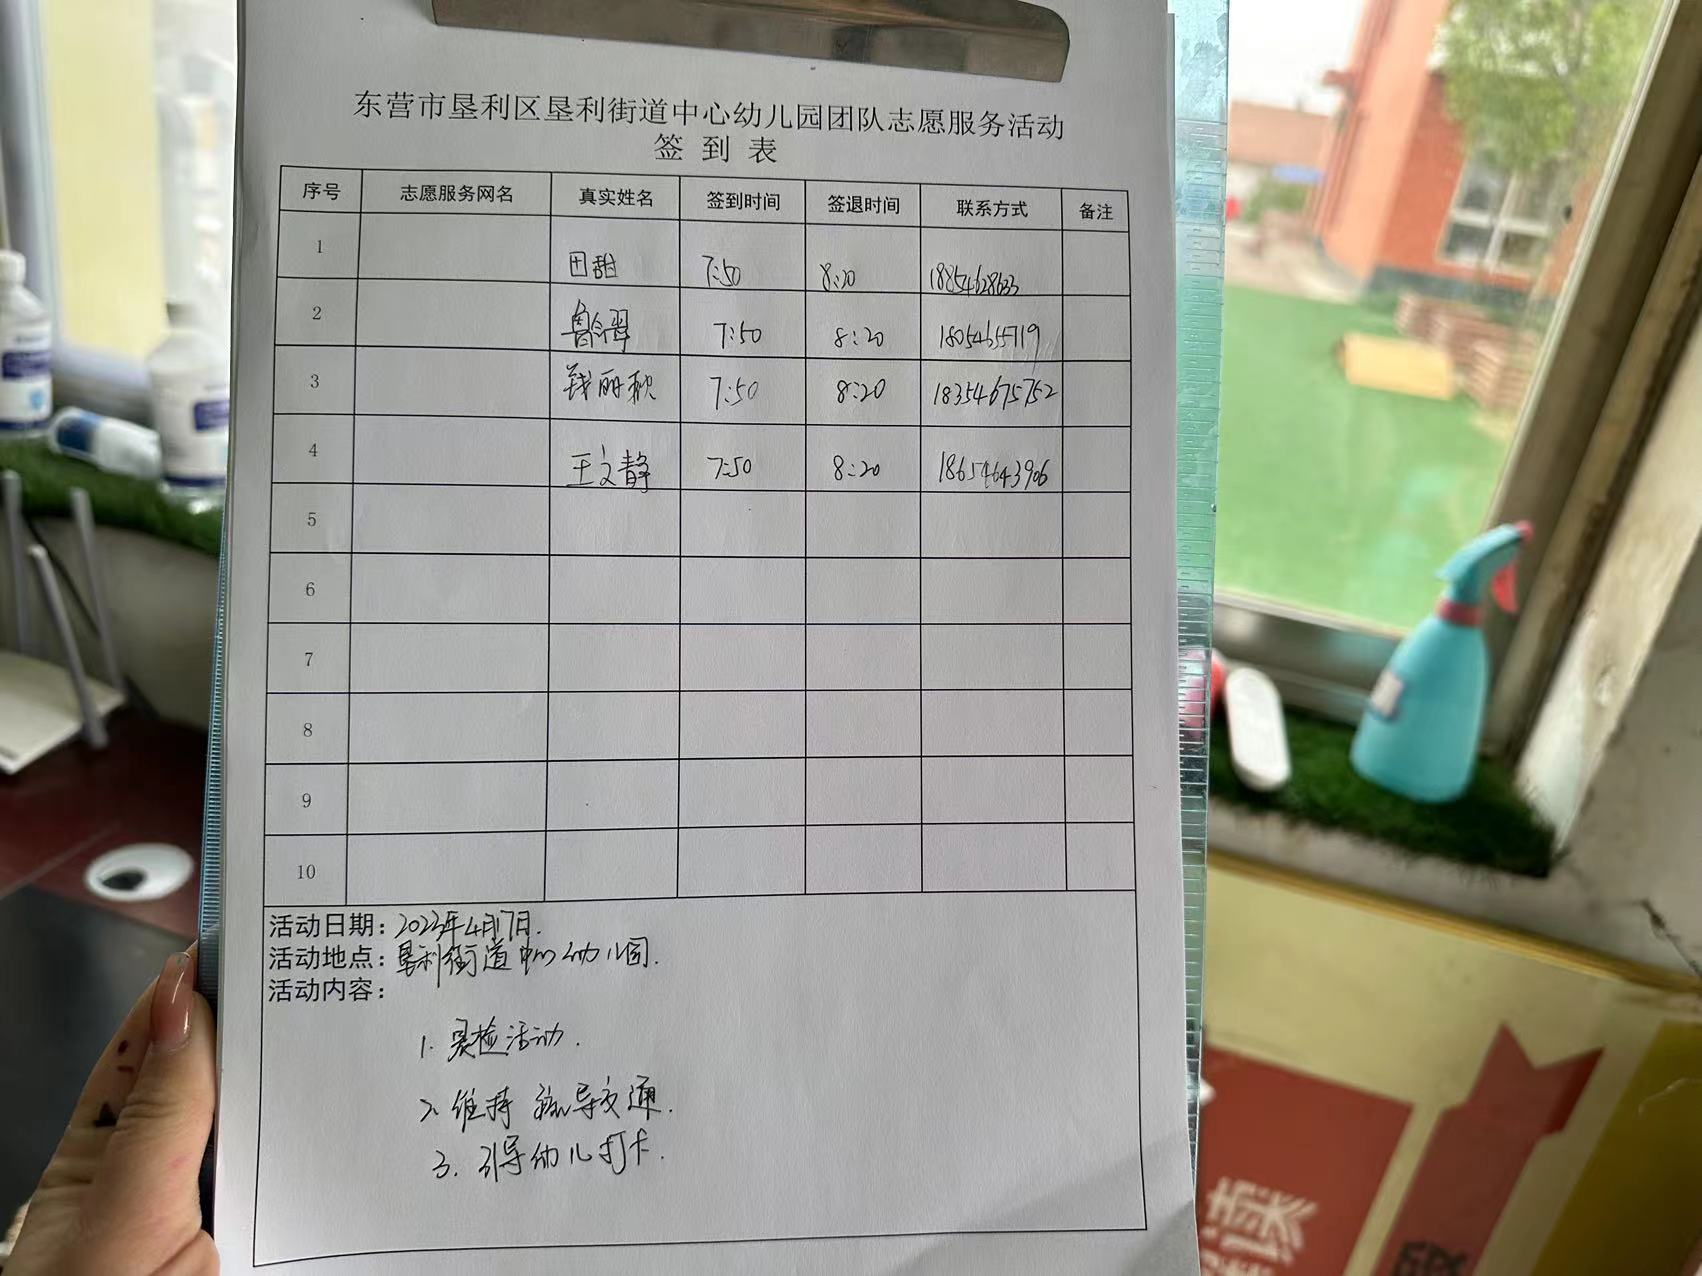 东营市垦利区垦利街道中心幼儿园团队志愿服务活动
签到表
序号 志愿服务网名 真实姓名 签到时间 签退时间 联系方式 备注
1 田甜 7:50 8:20 18854628633
2 7:50 8:20 18054655719
3 钱丽秋 7:50 8:20 18354675752
4 王文静 7:50 8:20 18654643906
5
6
7
8
9
10
活动日期：2023年4月17日.
活动地点：垦利街道中心幼儿园.
活动内容：
1. 晨检活动.
2. 维持 交通.
3. 引导幼儿打卡.